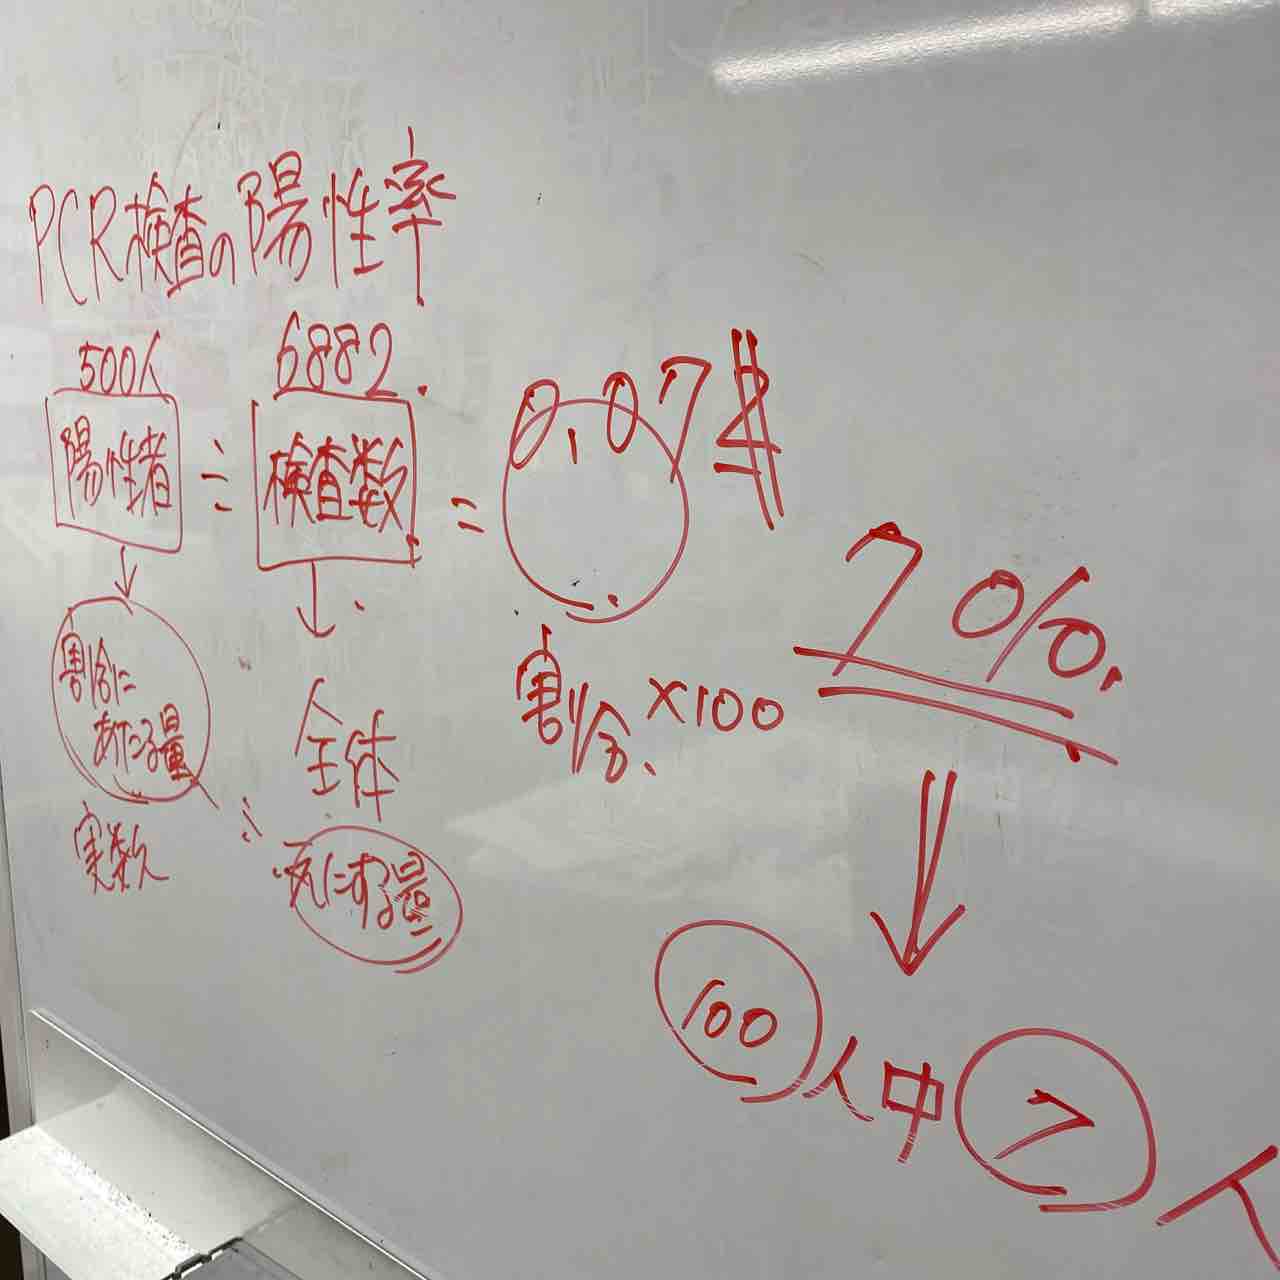 PCR検査の陽性率
500人
6882
陽性者 ÷ 検査数 = 0.07
割合にあたる量
全体
割合 ×100
7%
実数 ÷
元にする量
100人中7人